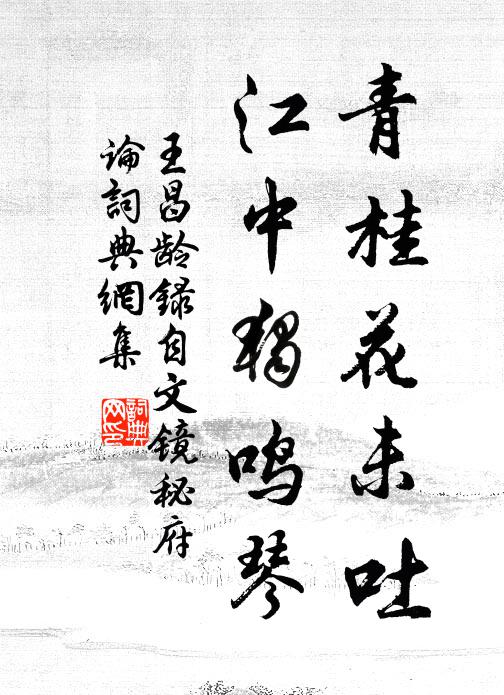 青桂花未吐
江中独鸣琴
王昌龄录自文镜秘府
论词典网集
词典网印